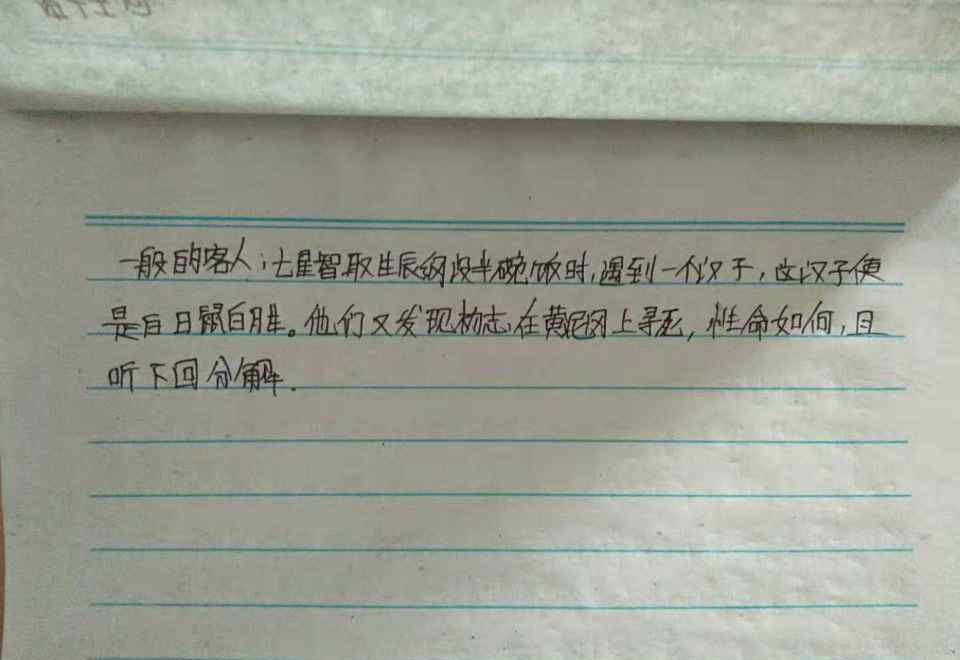 一般的客人；七星智取生辰纲没半碗饭时，遇到一个汉子，这汉子便
是白日鼠白胜。他们又发现杨志在黄泥冈上寻死，性命如何，且
听下回分解.